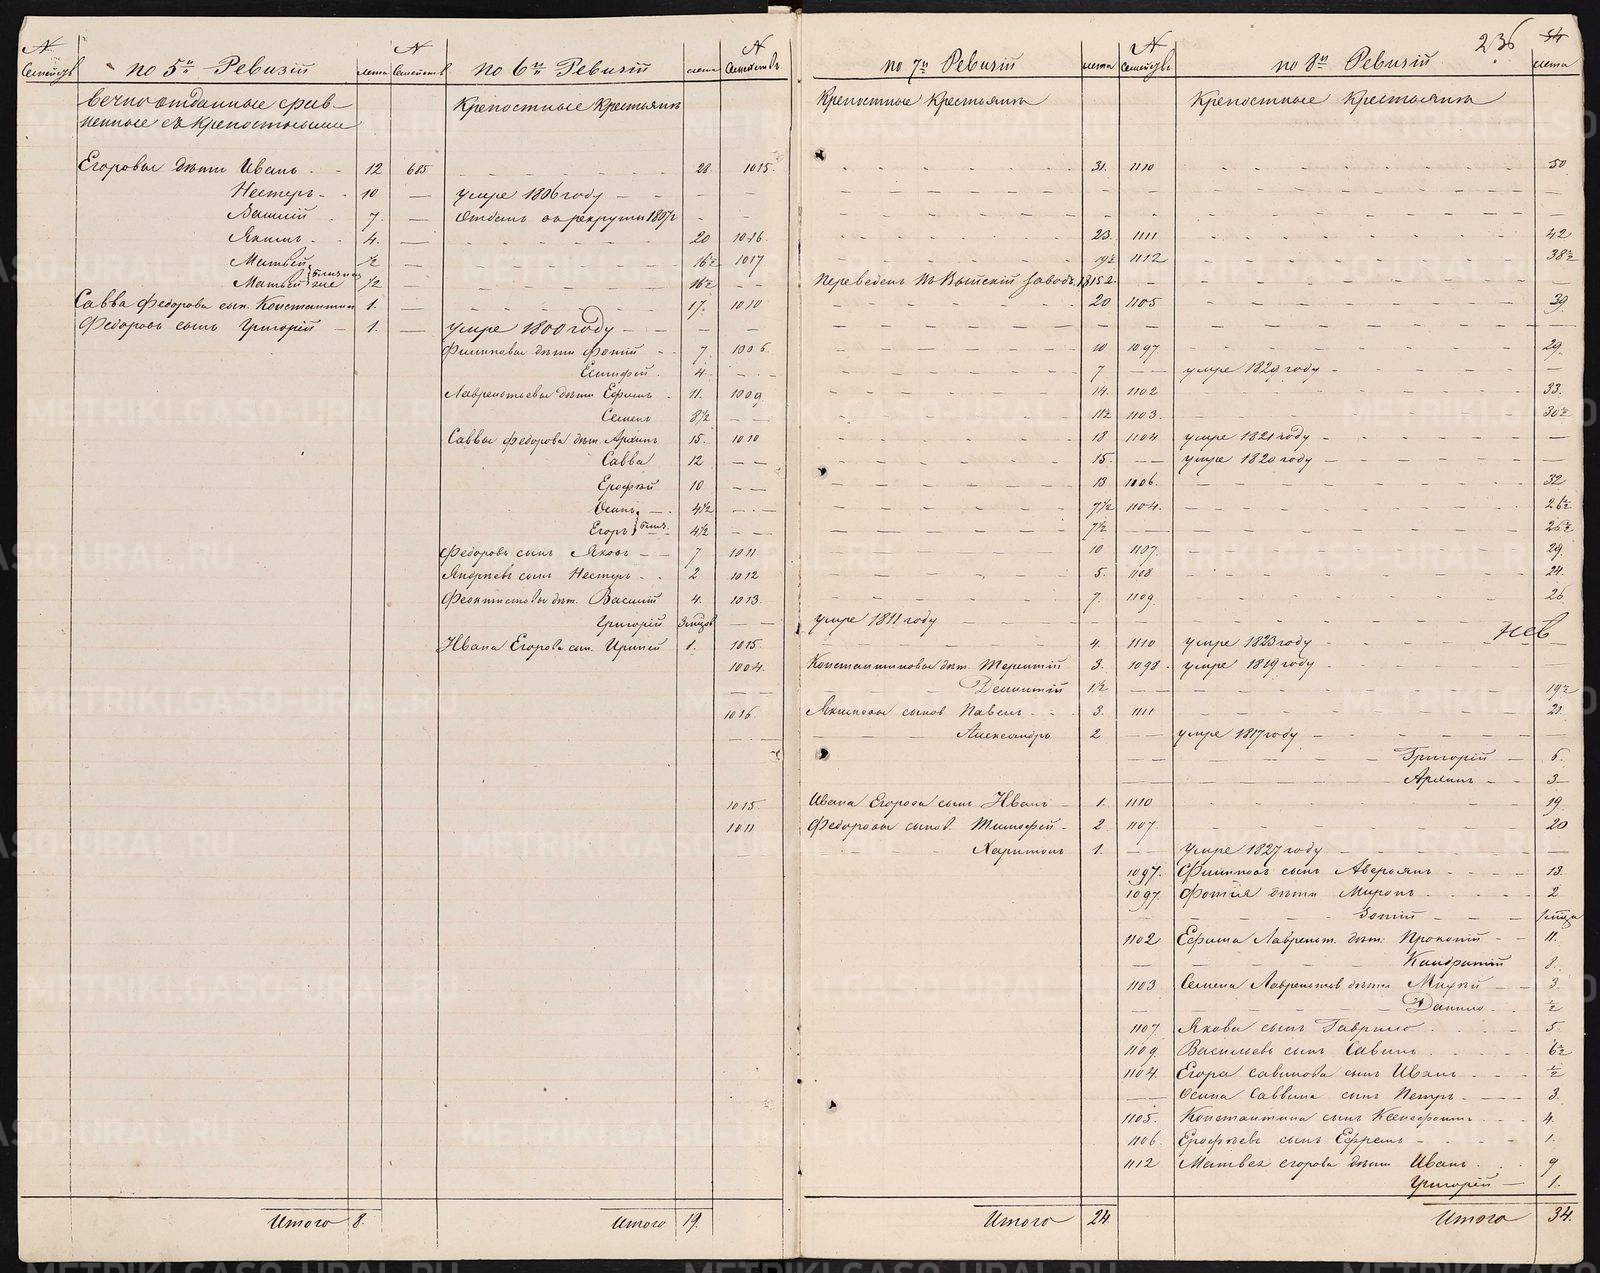 236 54
№ Семействъ по 5й Ревизiи лета № Семействъ по 6й Ревизiи лета № Семействъ по 7й Ревизiи лета № Семействъ по 8й Ревизiи лета
Вечно отданные срав-
ненные съ крепостными
Крепостные Крестьяне
Крепостные Крестьяне
Крепостные Крестьяне
Егоровы дѣти Иванъ 12 685 28 1015 31 1110 50
Нестеръ 10 умре 1806 году
Василiй 7 Отданъ въ рекруты 1807г
Якимъ 4 20 1016 23 1111 42
Матвей ½ 16½ 1017 19½ 1112 38½
Матвей ½ 16½ Переведенъ въ Выйскiй заводъ 1815 г.
Савва Федорова сын. Константинъ 1 17 1010 20 1105 39
Федоровъ сынъ Григорей 1 умре 1800 году
Филиповы дѣти Фотiй 7 1006 10 1097 29
Евтифей 4 7 умре 1829 году
Лаврентьевы дѣти Ефимъ 11 1009 14 1102 33
Семенъ 8½ 11½ 1103 30½
Саввы Федорова дѣт. Архипъ 15 1010 18 1104 умре 1821 году
Савва 12 15 умре 1820 году
Ерофей 10 13 1106 32
Осипъ 4½ 7½ 1104 26½
Егоръ близ. 4½ 7½ 26½
Федоровъ сынъ Яковъ 7 1011 10 1107 29
Андреевъ сынъ Нестеръ 2 1012 5 1108 24
Феоктистовы дѣт. Василiй 4 1013 7 1109 26
Григорiй умре 1811 году
нев
Ивана Егорова сын. Ириней 1 1015 4 1110 умре 1823 году
1004 Константиновы дѣт. Терентiй 3 1098 умре 1819 году
Дементiй 1½ 19½
1016 Якимовы сынов. Павелъ 3 1111 21
Александръ 2 умре 1817 году
Григорiй 6
Архипъ 3
1015 Ивана Егорова сынъ Иванъ 1 1110 19
1011 Федоровы сынов. Тимофей 2 1107 20
Харитонъ 1 умре 1827 году
1097 Филиповъ сынъ Аверьянъ 13
1097 Фотiя дѣти Миронъ 2
Зотiй
1102 Ефима Лаврент. дѣт. Прокопiй 11
Кандратiй 8
1103 Семена Лаврентьев дѣти Михей 3
Данило ½
1107 Якова сынъ Гаврило 5
1109 Васильевъ сынъ Савинъ 6½
1104 Егора Савинова сынъ Иванъ ½
Осипа Саввина сынъ Петръ 3
1105 Константина сынъ Ксенофонтъ 4
1106 Ерофеевъ сынъ Ефремъ 1
1112 Матвея Егорова дѣти Иванъ 9
Григорей 1
Итого 8 Итого 19 Итого 24 Итого 34
METRIKI.GASO-URAL.RU